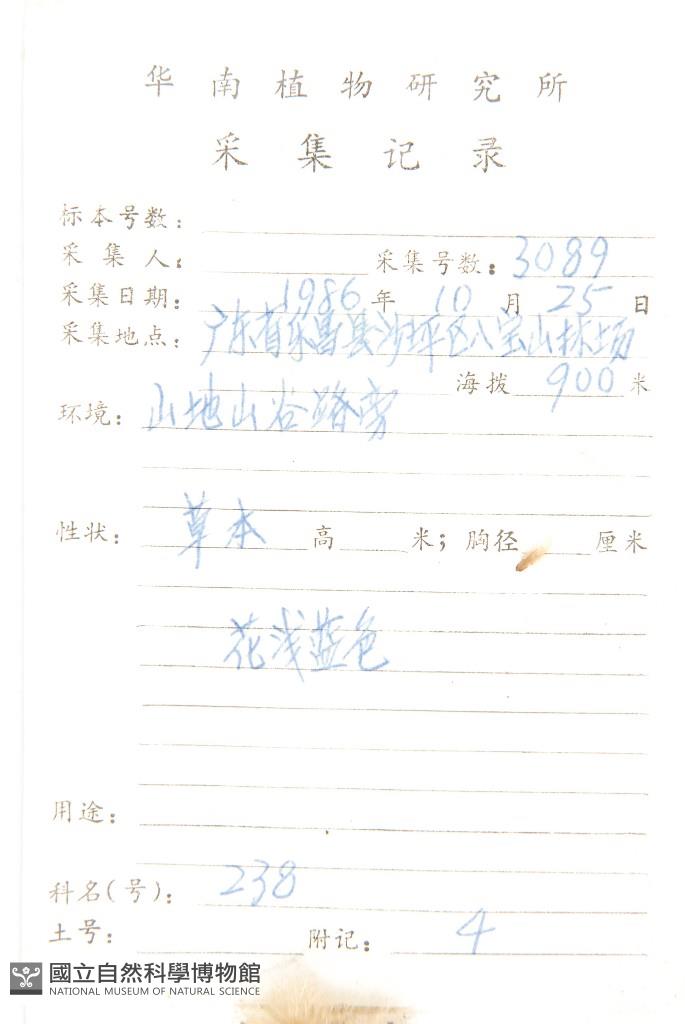 华南植物研究所
采集记录
标本号数：
采集人： 采集号数：3089
采集日期：1986年10月25日
采集地点：广东省乐昌县沙坪区八宝山林场
海拨 900 米
环境：山地山谷路旁
性状：草本 高 米；胸径 厘米
花浅蓝色
用途：
科名(号)：238
土号： 附记：4
國立自然科學博物館
NATIONAL MUSEUM OF NATURAL SCIENCE